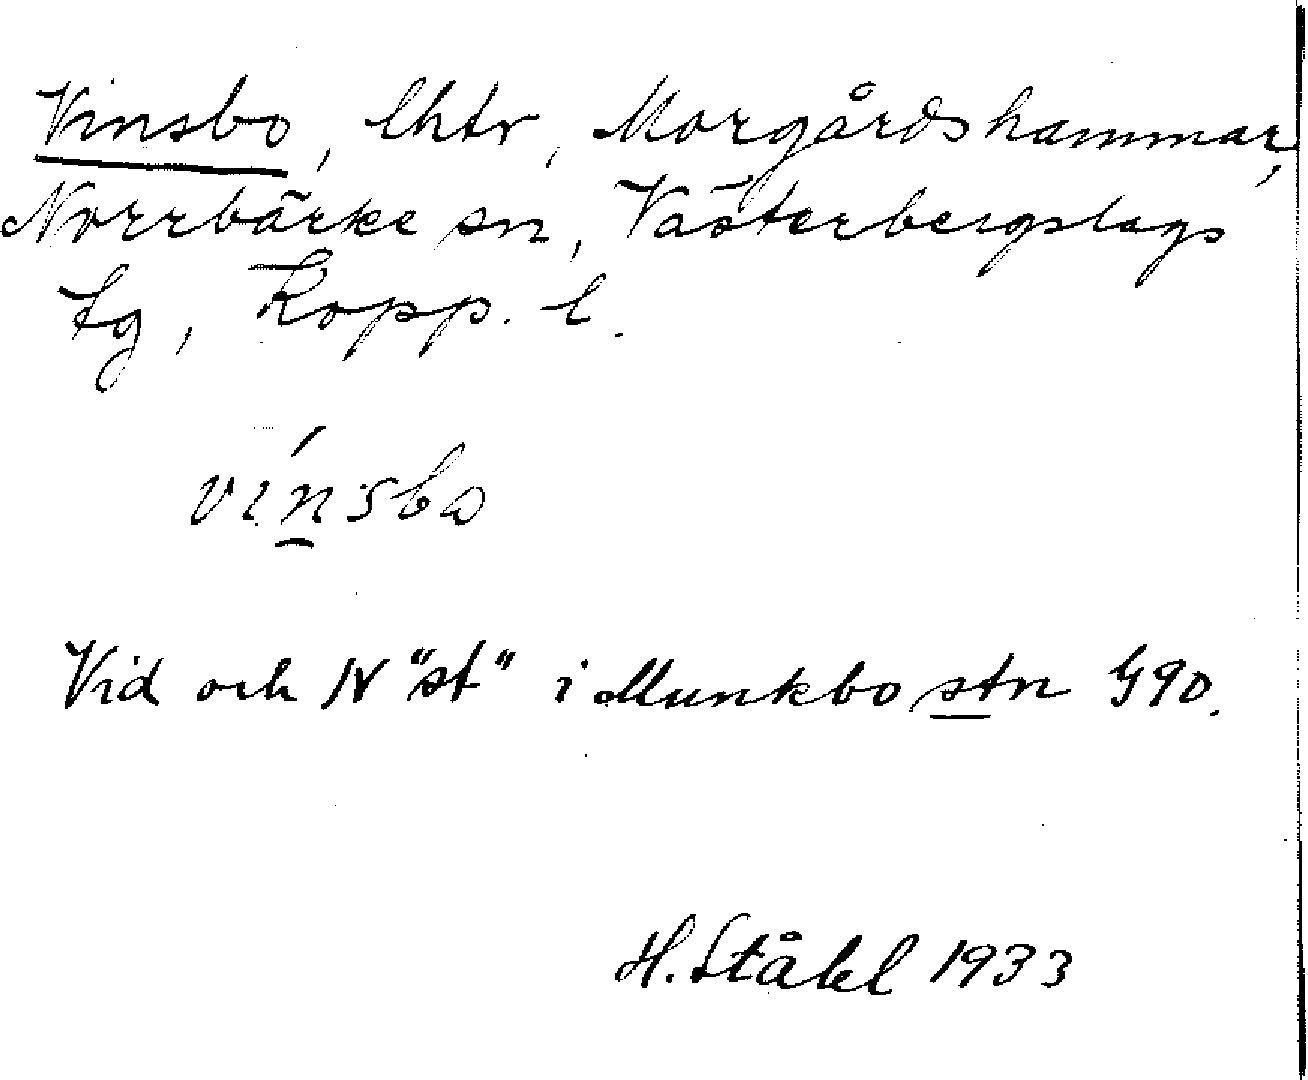 Vinsbo, lhtr, Morgårdshammar,
Norrbärke sn, Västerbergslags
tg, Kopp. l.
vínsbo
Vid och N "st" i Munkbo stn G90.
H. Ståhl 1933